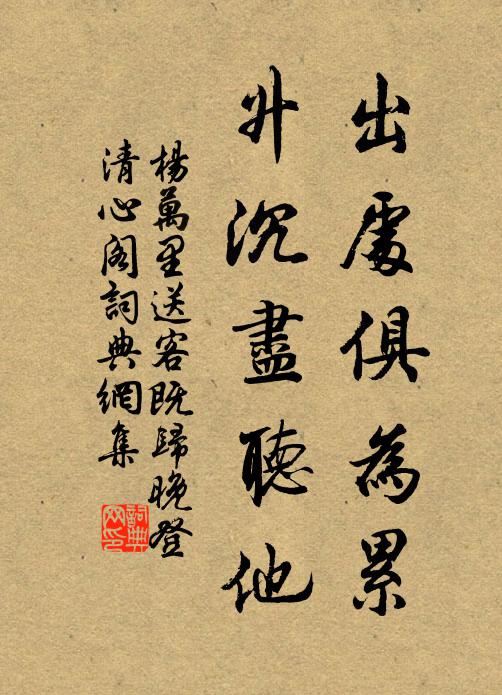 出處俱為累
升沉盡聽他
楊萬里送客既歸晚登
清心閣詞典網集
詞典
网印